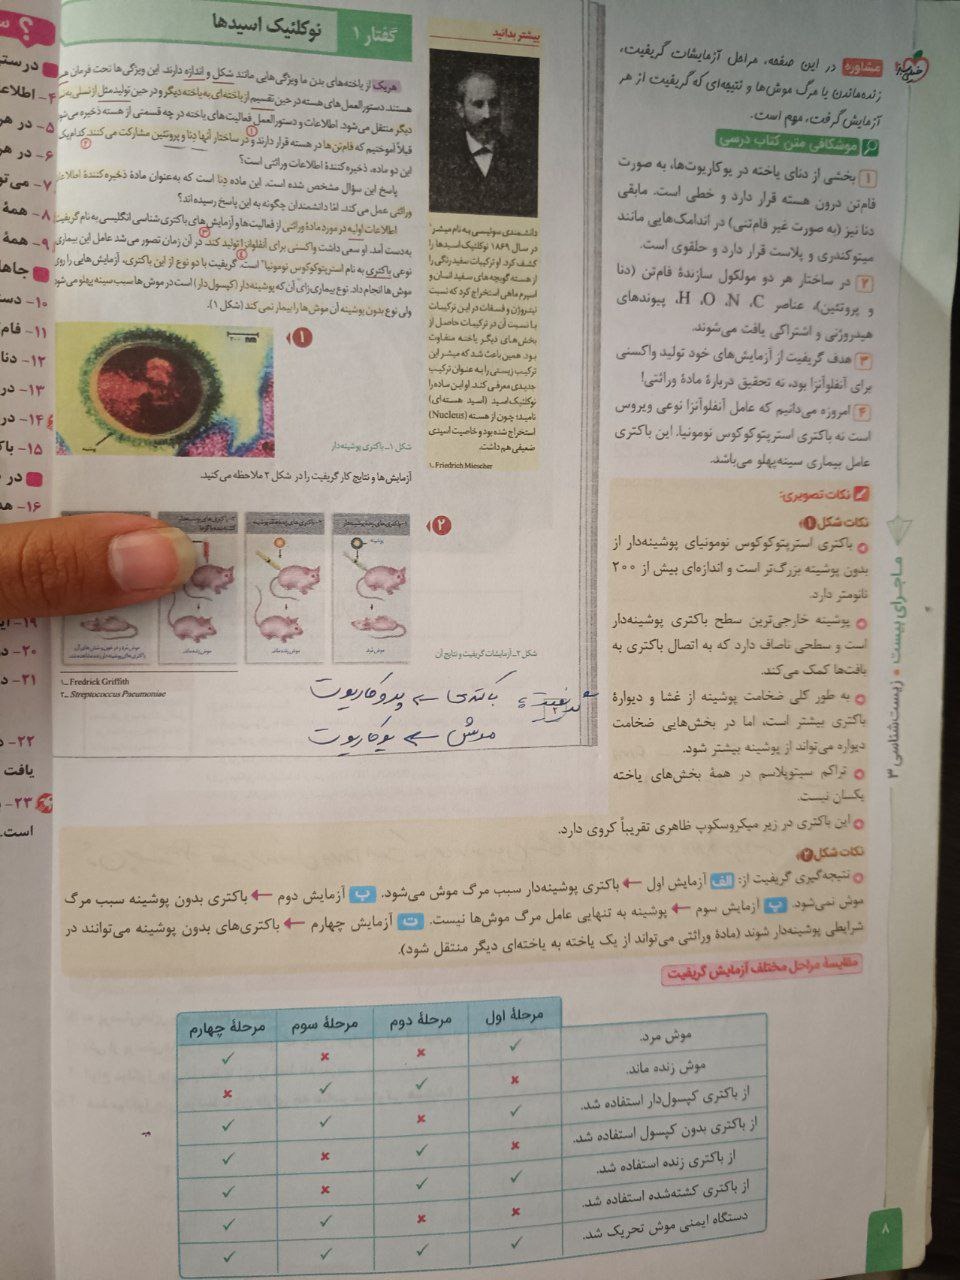 گفتار ۱ نوکلئیک اسیدها
هریک از یاخته‌های بدن ما ویژگی‌هایی مانند شکل و اندازه دارند. این ویژگی‌ها تحت فرمان
هستند. دستورالعمل‌های هسته در حین تقسیم از یاخته‌ای به یاخته دیگر و در حین تولیدمثل از نسلی به
دیگر منتقل می‌شود. اطلاعات و دستورالعمل فعالیت‌های یاخته در چه قسمتی از هسته ذخیره می‌شود
قبلاً آموختیم که فام‌تن‌ها در هسته قرار دارند و در ساختار آنها دِنا و پروتئین مشارکت می‌کنند. کدام یک
این دو ماده، ذخیره‌کنندهٔ اطلاعات وراثتی است؟
پاسخ این سؤال مشخص شده است. این ماده دِنا است که به‌عنوان مادهٔ ذخیره‌کنندهٔ اطلاعات
وراثتی عمل می‌کند. امّا دانشمندان چگونه به این پاسخ رسیده‌اند؟
اطلاعات اولیه در مورد مادهٔ وراثتی از فعالیت‌ها و آزمایش‌های باکتری‌شناسی انگلیسی به نام گریفیت
به‌دست آمد. او سعی داشت واکسنی برای آنفلوانزا تولید کند. در آن زمان تصور می‌شد عامل این بیماری
نوعی باکتری به نام استرپتوکوکوس نومونیا۲ است. گریفیت با دو نوع از این باکتری، آزمایش‌هایی را روی
موش‌ها انجام داد. نوع بیماری‌زای آن که پوشینه‌دار (کپسول‌دار) است در موش‌ها سبب سینه‌پهلو می‌شود
ولی نوع بدون پوشینه آن موش‌ها را بیمار نمی‌کند (شکل ۱).
۱
پوشینه
شکل ۱ـ باکتری پوشینه‌دار
آزمایش‌ها و نتایج کار گریفیت را در شکل ۲ ملاحظه می‌کنید.
۲
پوشینه
موش مُرد
موش زنده ماند.
موش زنده ماند.
شکل ۲ـ آزمایشات گریفیت و نتایج آن
۱ـ Fredrick Griffith
۲ـ Streptococcus Pneumoniae
باکتری ← پروکاریوت
موش ← یوکاریوت
بیشتر بدانید
دانشمندی سوئیسی به نام میشر۱
در سال ۱۸۶۹ نوکلئیک اسیدها را
کشف کرد. او ترکیبات سفیدرنگی را
از هسته گویچه‌های سفید انسان و
اسپرم ماهی استخراج کرد که نسبت
نیتروژن و فسفات در این ترکیبات
با نسبت آن در ترکیبات حاصل از
بخش‌های دیگر یاخته متفاوت
بود. همین باعث شد که میشر این
ترکیب زیستی را به عنوان ترکیب
جدیدی معرفی کند. او این ماده را
نوکلئیک‌اسید (اسید هسته‌ای)
نامید؛ چون از هسته (Nucleus)
استخراج شده بود و خاصیت اسیدی
ضعیفی هم داشت.
۱ـ Friedrich Miescher
مشاوره در این صفحه، مراحل آزمایشات گریفیت،
زنده‌ماندن یا مرگ موش‌ها و نتیجه‌ای که گریفیت از هر
آزمایش گرفت، مهم است.
موشکافی متن کتاب درسی
۱ بخشی از دنای یاخته در یوکاریوت‌ها، به صورت
فام‌تن درون هسته قرار دارد و خطی است. مابقی
دنا نیز (به صورت غیر فام‌تنی) در اندامک‌هایی مانند
میتوکندری و پلاست قرار دارد و حلقوی است.
۲ در ساختار هر دو مولکول سازندهٔ فام‌تن (دنا
و پروتئین)، عناصر C، N، O، H، پیوندهای
هیدروژنی و اشتراکی یافت می‌شوند.
۳ هدف گریفیت از آزمایش‌های خود تولید واکسنی
برای آنفلوآنزا بود، نه تحقیق دربارهٔ مادهٔ وراثتی!
۴ امروزه می‌دانیم که عامل آنفلوآنزا نوعی ویروس
است نه باکتری استرپتوکوکوس نومونیا. این باکتری
عامل بیماری سینه‌پهلو می‌باشد.
نکات تصویری:
نکات شکل ۱
باکتری استرپتوکوکوس نومونیای پوشینه‌دار از
بدون پوشینه بزرگ‌تر است و اندازه‌ای بیش از ۲۰۰
نانومتر دارد.
پوشینه خارجی‌ترین سطح باکتری پوشینه‌دار
است و سطحی ناصاف دارد که به اتصال باکتری به
بافت‌ها کمک می‌کند.
به طور کلی ضخامت پوشینه از غشا و دیوارهٔ
باکتری بیشتر است، اما در بخش‌هایی ضخامت
دیواره می‌تواند از پوشینه بیشتر شود.
تراکم سیتوپلاسم در همهٔ بخش‌های یاخته
یکسان نیست.
این باکتری در زیر میکروسکوپ ظاهری تقریباً کروی دارد.
نکات شکل ۲
نتیجه‌گیری گریفیت از: الف آزمایش اول ← باکتری پوشینه‌دار سبب مرگ موش می‌شود. ب آزمایش دوم ← باکتری بدون پوشینه سبب مرگ
موش نمی‌شود. پ آزمایش سوم ← پوشینه به تنهایی عامل مرگ موش‌ها نیست. ت آزمایش چهارم ← باکتری‌های بدون پوشینه می‌توانند در
شرایطی پوشینه‌دار شوند (مادهٔ وراثتی می‌تواند از یک یاخته به یاخته‌ای دیگر منتقل شود).
مقایسهٔ مراحل مختلف آزمایش گریفیت
مرحلهٔ اول مرحلهٔ دوم مرحلهٔ سوم مرحلهٔ چهارم
موش مرد. ✓ ✗ ✗ ✓
موش زنده ماند. ✗ ✓ ✓ ✗
از باکتری کپسول‌دار استفاده شد. ✓ ✗ ✓ ✓
از باکتری بدون کپسول استفاده شد. ✗ ✓ ✗ ✓
از باکتری زنده استفاده شد. ✓ ✓ ✗ ✓
از باکتری کشته‌شده استفاده شد. ✗ ✗ ✓ ✓
دستگاه ایمنی موش تحریک شد. ✓ ✓ ✓ ✓
ماجرای بیست • زیست‌شناسی ۳
۸